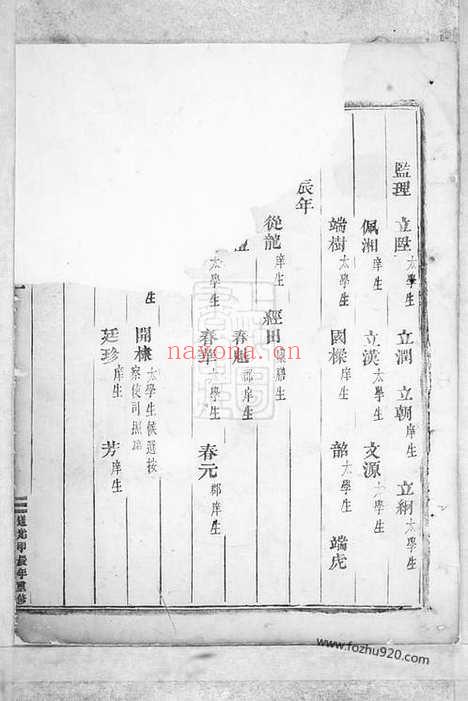 監理 立陞太學生 立潤 立朝庠生 立綱太學生
佩湘庠生 立漢太學生 文源太學生
端樹太學生 國樑庠生 韶太學生 端虎
辰年
從龍庠生 經田庠生
春魁郡庠生
太學生 春華太學生 春元郡庠生
生 開棣太學生候選按察使司照磨
廷珍庠生 芳庠生
道光甲辰年重修
nayona.cn
www.fozhu920.com